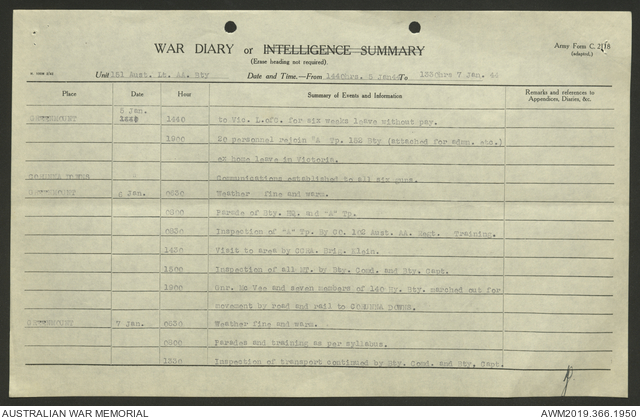 WAR DIARY or INTELLIGENCE SUMMARY
(Erase heading not required).
Army Form C. 2118
(adapted.)
Unit 151 Aust. Lt. AA. Bty Date and Time.—From 1440hrs. 5 Jan44 To 1330hrs 7 Jan. 44
Place Date Hour Summary of Events and Information Remarks and references to Appendices, Diaries, &c.
5 Jan.
1440 to Vic. L.ofC. for six weeks leave without pay.
1900 20 personnel rejoin "A" Tp. 152 Bty (attached for admn. etc.)
ex home leave in Victoria.
Communications established to all six guns.
6 Jan. 0630 Weather fine and warm.
0800 Parade of Bty. HQ. and "A" Tp.
0830 Inspection of "A" Tp. By CO. 102 Aust. AA. Regt. Training.
1430 Visit to area by CCRA. Brig. Klein.
1500 Inspection of all MT. by Bty. Comd. and Bty. Capt.
1900 Gnr. Mc Vee and seven members of 140 Hy. Bty. marched out for
movement by road and rail to
7 Jan. 0630 Weather fine and warm.
0800 Parades and training as per syllabus.
1330 Inspection of transport continued by Bty. Comd. and Bty. Capt.
AUSTRALIAN WAR MEMORIAL AWM2019.366.1950